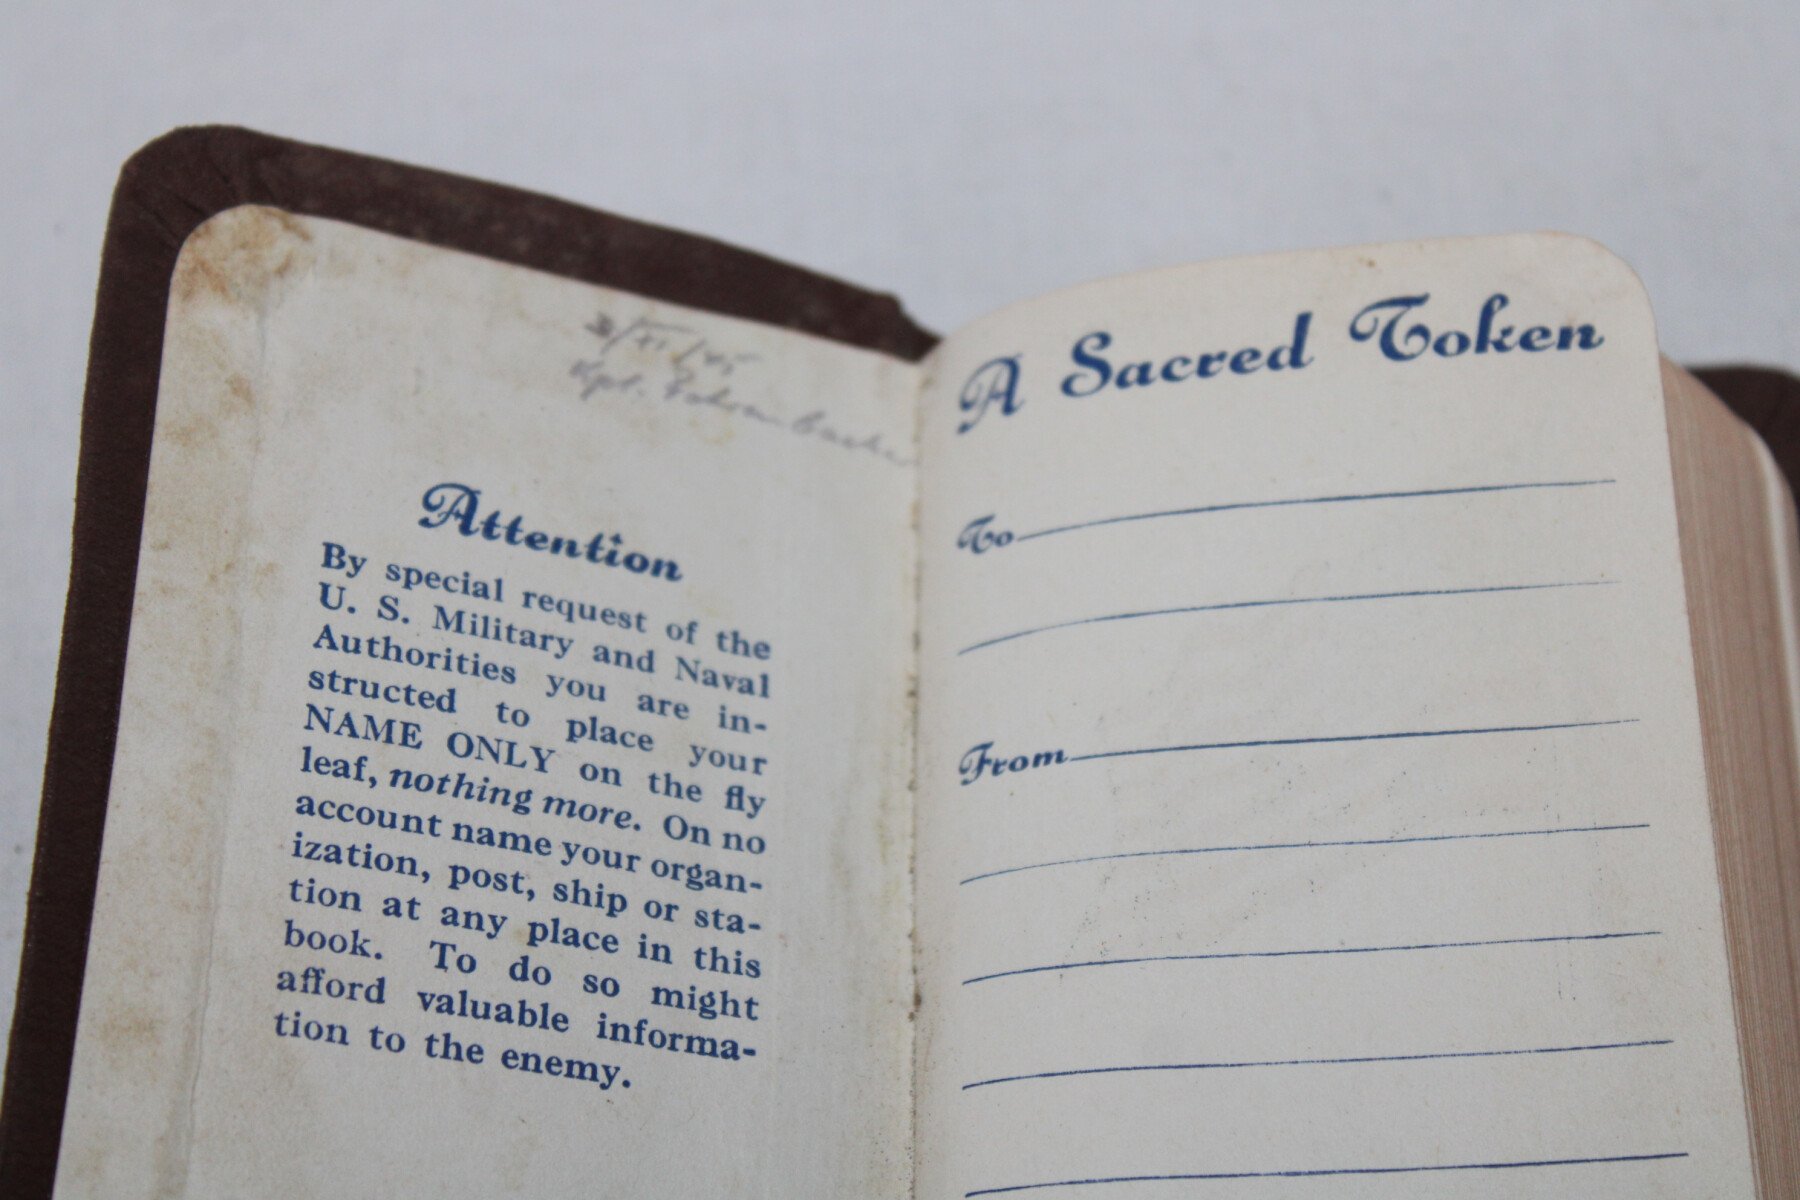 Attention
By special request of the
U. S. Military and Naval
Authorities you are in-
structed to place your
NAME ONLY on the fly
leaf, nothing more. On no
account name your organ-
ization, post, ship or sta-
tion at any place in this
book. To do so might
afford valuable informa-
tion to the enemy.
A Sacred Token
To
From